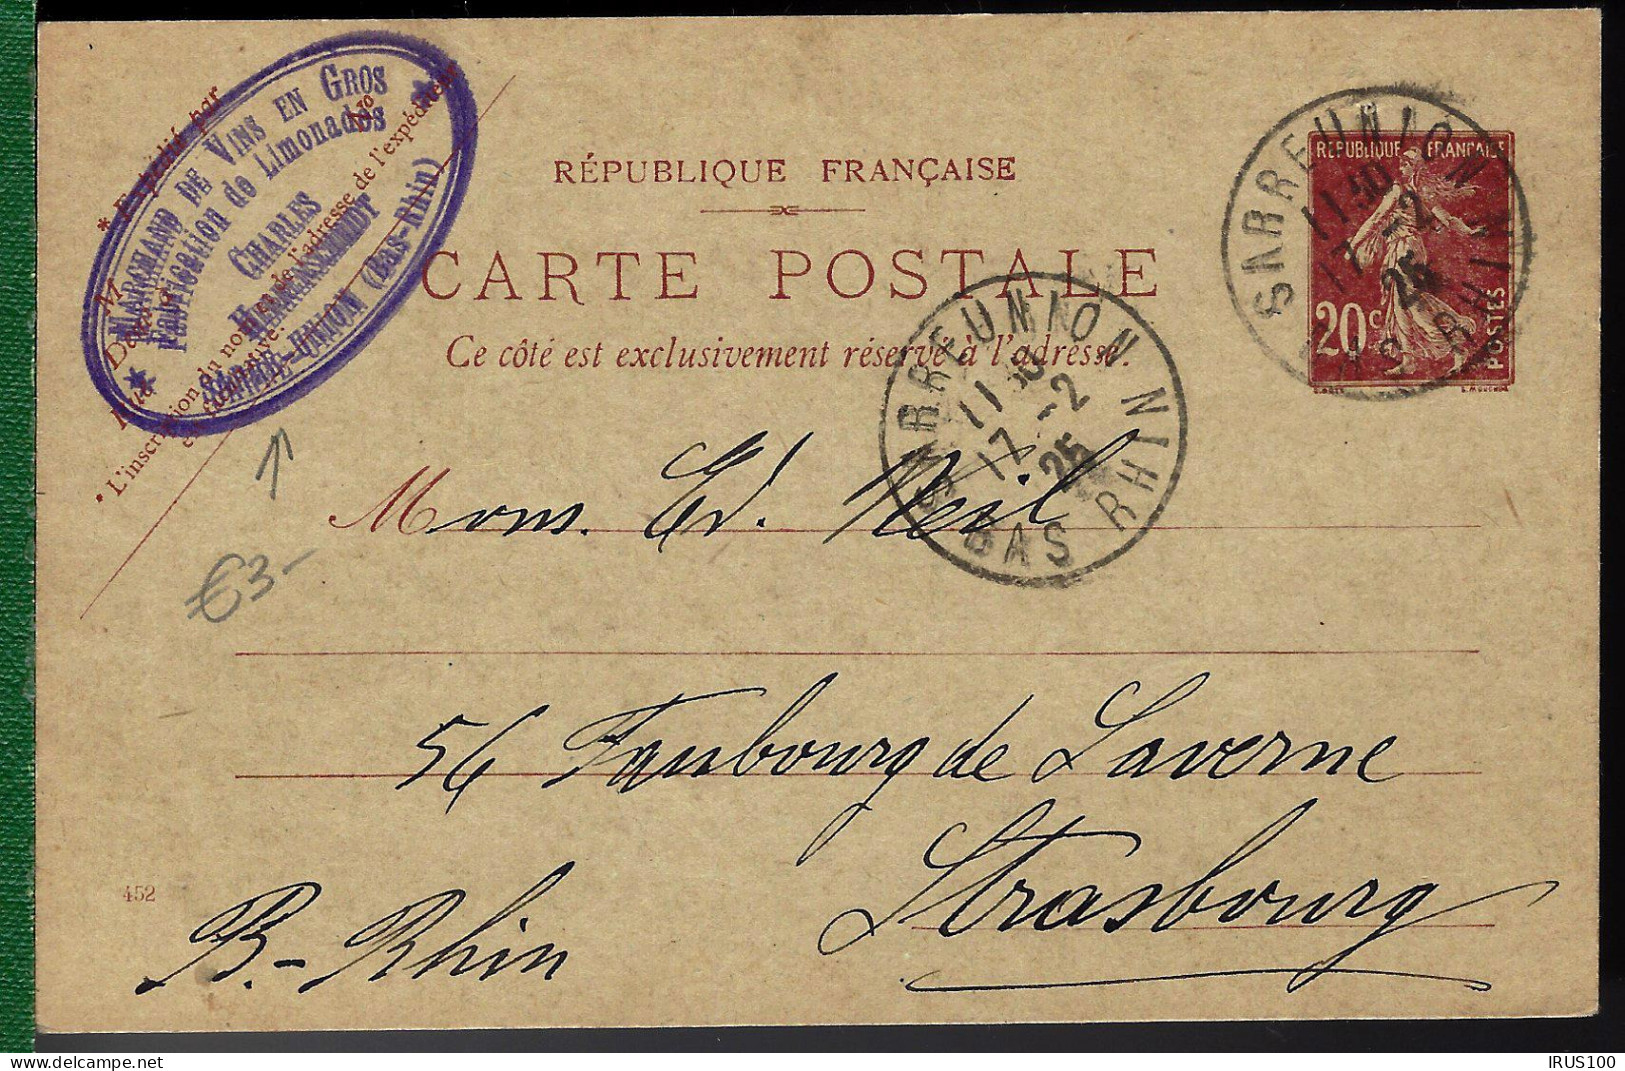 MARCHAND DE VINS EN GROS
Fabrication de Limonades
CHARLES
SARRE-UNION (Bas-Rhin)
* Expédié par
M
N°
* L'inscription du nom et de l'adresse de l'expéditeur
RÉPUBLIQUE FRANÇAISE
CARTE POSTALE
Ce côté est exclusivement réservé à l'adresse.
REPUBLIQUE FRANÇAISE
20c
POSTES
SARREUNION
11 30
17 -2
25
BAS RHIN
SARREUNION
11 30
17 -2
25
BAS RHIN
Mons. Ed. Weil
€3-
56 Faubourg de Saverne
Strasbourg
452
B.-Rhin
IRUS100